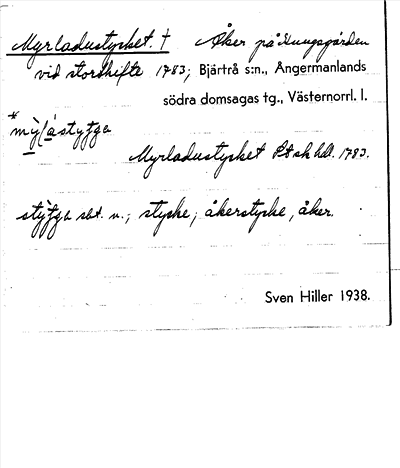 Myrladustycket. † Åker på Kungsgården
vid storskifte 1783; Bjärtrå s:n., Ångermanlands
södra domsagas tg., Västernorrl. l.
Myrladustycket Lt sk hdl. 1783.
sbt. n.; stycke; åkerstycke, åker.
Sven Hiller 1938.